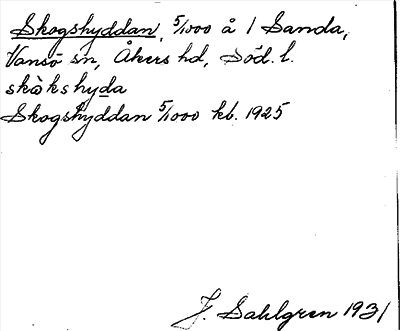 Skogshyddan, 5/1000 å 1 Sanda,
Vansö sn, Åkers hd, Söd. l.
skòkshyda
Skogshyddan 5/1000 kb. 1925
J. Sahlgren 1931